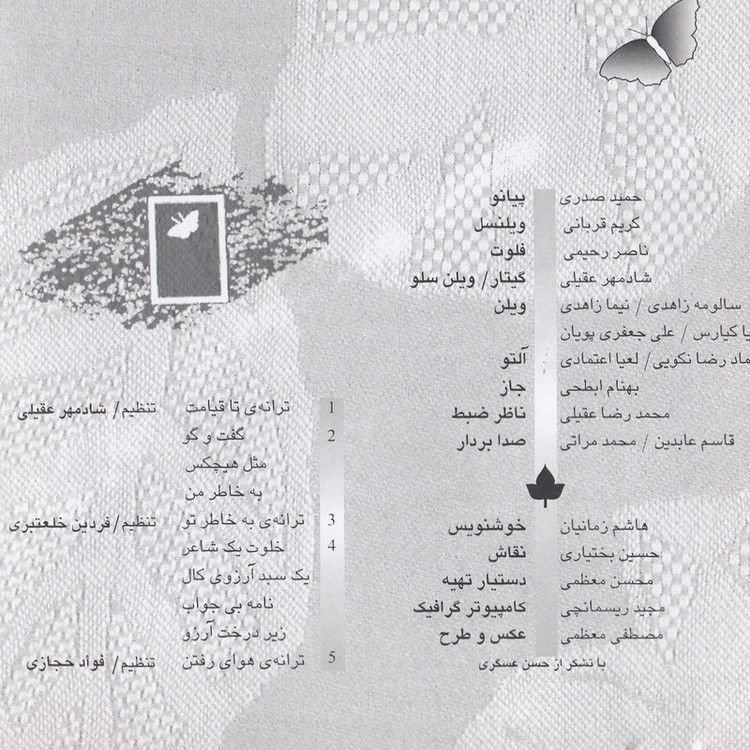 پیانو حمید صدری
ویلنسل کریم قربانی
فلوت ناصر رحیمی
گیتار/ ویلن سلو شادمهر عقیلی
ویلن سالومه زاهدی / نیما زاهدی
کیارس / علی جعفری پویان
آلتو رضا نکویی/ لعیا اعتمادی
جاز بهنام ابطحی
ناظر ضبط محمد رضا عقیلی
صدا بردار قاسم عابدین / محمد مراتی
خوشنویس هاشم زمانیان
نقاش حسین بختیاری
دستیار تهیه محسن معظمی
کامپیوتر گرافیک مجید ریسمانچی
عکس و طرح مصطفی معظمی
با تشکر از حسن عسگری
1 ترانه‌ی تا قیامت تنظیم/ شادمهر عقیلی
2 گفت و گو
مثل هیچکس
به خاطر من
3 ترانه‌ی به خاطر تو تنظیم/ فردین خلعتبری
4 خلوت یک شاعر
یک سبد آرزوی کال
نامه بی جواب
زیر درخت آرزو
5 ترانه‌ی هوای رفتن تنظیم/ فواد حجازی